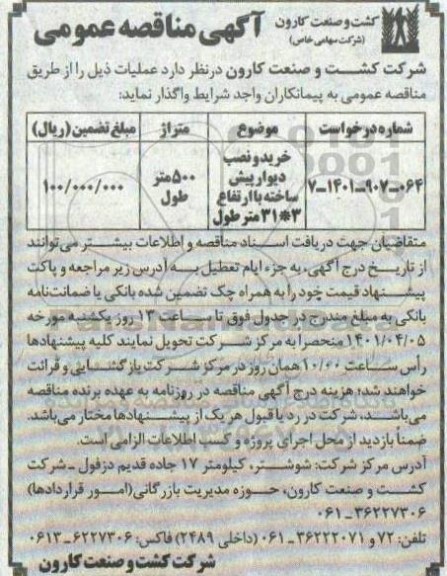 کشت و صنعت کارون
(شرکت سهامی خاص)
آگهی مناقصه عمومی
شرکت کشت و صنعت کارون درنظر دارد عملیات ذیل را از طریق
مناقصه عمومی به پیمانکاران واجد شرایط واگذار نماید:
شماره درخواست موضوع متراژ مبلغ تضمین (ریال)
۷-۱۴۰۱-۹۰۷-۰۶۴ خرید و نصب دیوار پیش ساخته با ارتفاع ۳*۳۱ متر طول ۵۰۰ متر طول ۱۰۰/۰۰۰/۰۰۰
متقاضیان جهت دریافت اسناد مناقصه و اطلاعات بیشتر می‌توانند
از تاریخ درج آگهی، به جزء ایام تعطیل به آدرس زیر مراجعه و پاکت
پیشنهاد قیمت خود را به همراه چک تضمین شده بانکی یا ضمانت‌نامه
بانکی به مبلغ مندرج در جدول فوق تا ساعت ۱۳ روز یکشنبه مورخه
۱۴۰۱/۰۴/۰۵ منحصرا به مرکز شرکت تحویل نمایند کلیه پیشنهادها
رأس ساعت ۱۰/۰۰ همان روز در مرکز شرکت بازگشایی و قرائت
خواهند شد؛ هزینه درج آگهی مناقصه در روزنامه به عهده برنده مناقصه
می‌باشد، شرکت در رد یا قبول هر یک از پیشنهادها مختار می‌باشد.
ضمناً بازدید از محل اجرای پروژه و کسب اطلاعات الزامی است.
آدرس مرکز شرکت: شوشتر، کیلومتر ۱۷ جاده قدیم دزفول - شرکت
کشت و صنعت کارون، حوزه مدیریت بازرگانی (امور قراردادها)
۰۶۱-۳۶۲۲۷۳۰۶
تلفن: ۷۲ و ۳۶۲۲۲۰۷۱-۰۶۱ (داخلی ۲۴۸۹) فاکس: ۰۶۱۳-۶۲۲۷۳۰۶
شرکت کشت و صنعت کارون